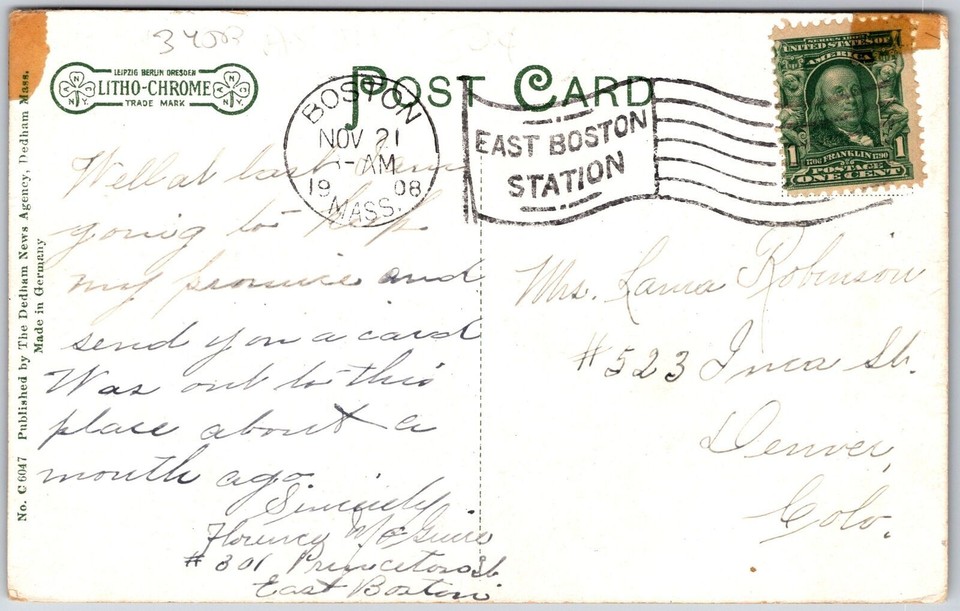 34503
LEIPZIG BERLIN DRESDEN
LITHO-CHROME
TRADE MARK
N.Y.
N.Y.
POST CARD
BOSTON
NOV 21
-AM
1908
MASS.
EAST BOSTON
STATION
SERIES 1902
UNITED STATES OF
AMERICA
1 1
1706 FRANKLIN 1790
POSTAGE
ONE CENT
Well at last I am
going to keep
my promise and
send you a card
Was out to this
place about a
month ago.
Sincerely
Florence McGuire
#301 Princeton St
East Boston
Mrs. Laura Robinson
#523 Inca St.
Denver,
Colo.
No. C 6047 Published by The Dedham News Agency, Dedham Mass.
Made in Germany